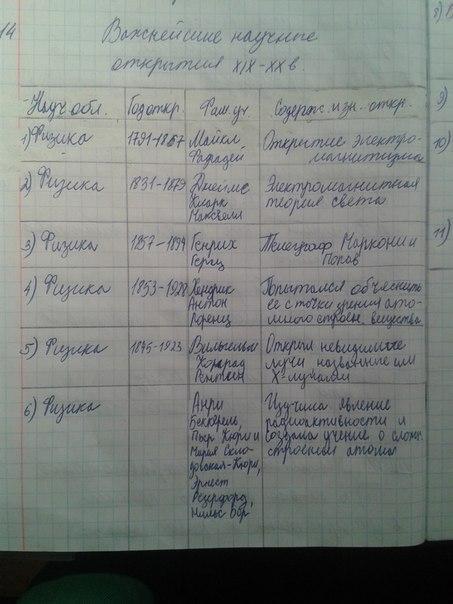 14
Важнейшие научные
открытия XIX-XX в.
Науч обл. Год откр. Фам. уч. Содерж. изн. откр.
1) Физика 1791-1867 Майкл Фарадей Открытие электро-
магнитизма
2) Физика 1831-1879 Джеймс
Кларк
Максвелл Электромагнитная
теория света
3) Физика 1857-1894 Генрих
Герц Телеграф Маркони и
Попов
4) Физика 1853-1928 Хендрик
Антон
Лоренц Попытался объяснить
ее с точки зрения ато-
много строен. вещества
5) Физика 1845-1923 Вильгельм
Конрад
Рентген Открыл невидимые
лучи названные им
X-лучами
6) Физика Анри
Беккерель,
Пьер Кюри и
Мария Скло-
довская-Кюри,
Эрнест
Резерфорд,
Нильс Бор Изучили явление
радиоактивности и
создали учение о сложн.
строении атома
8)
9)
10)
11)